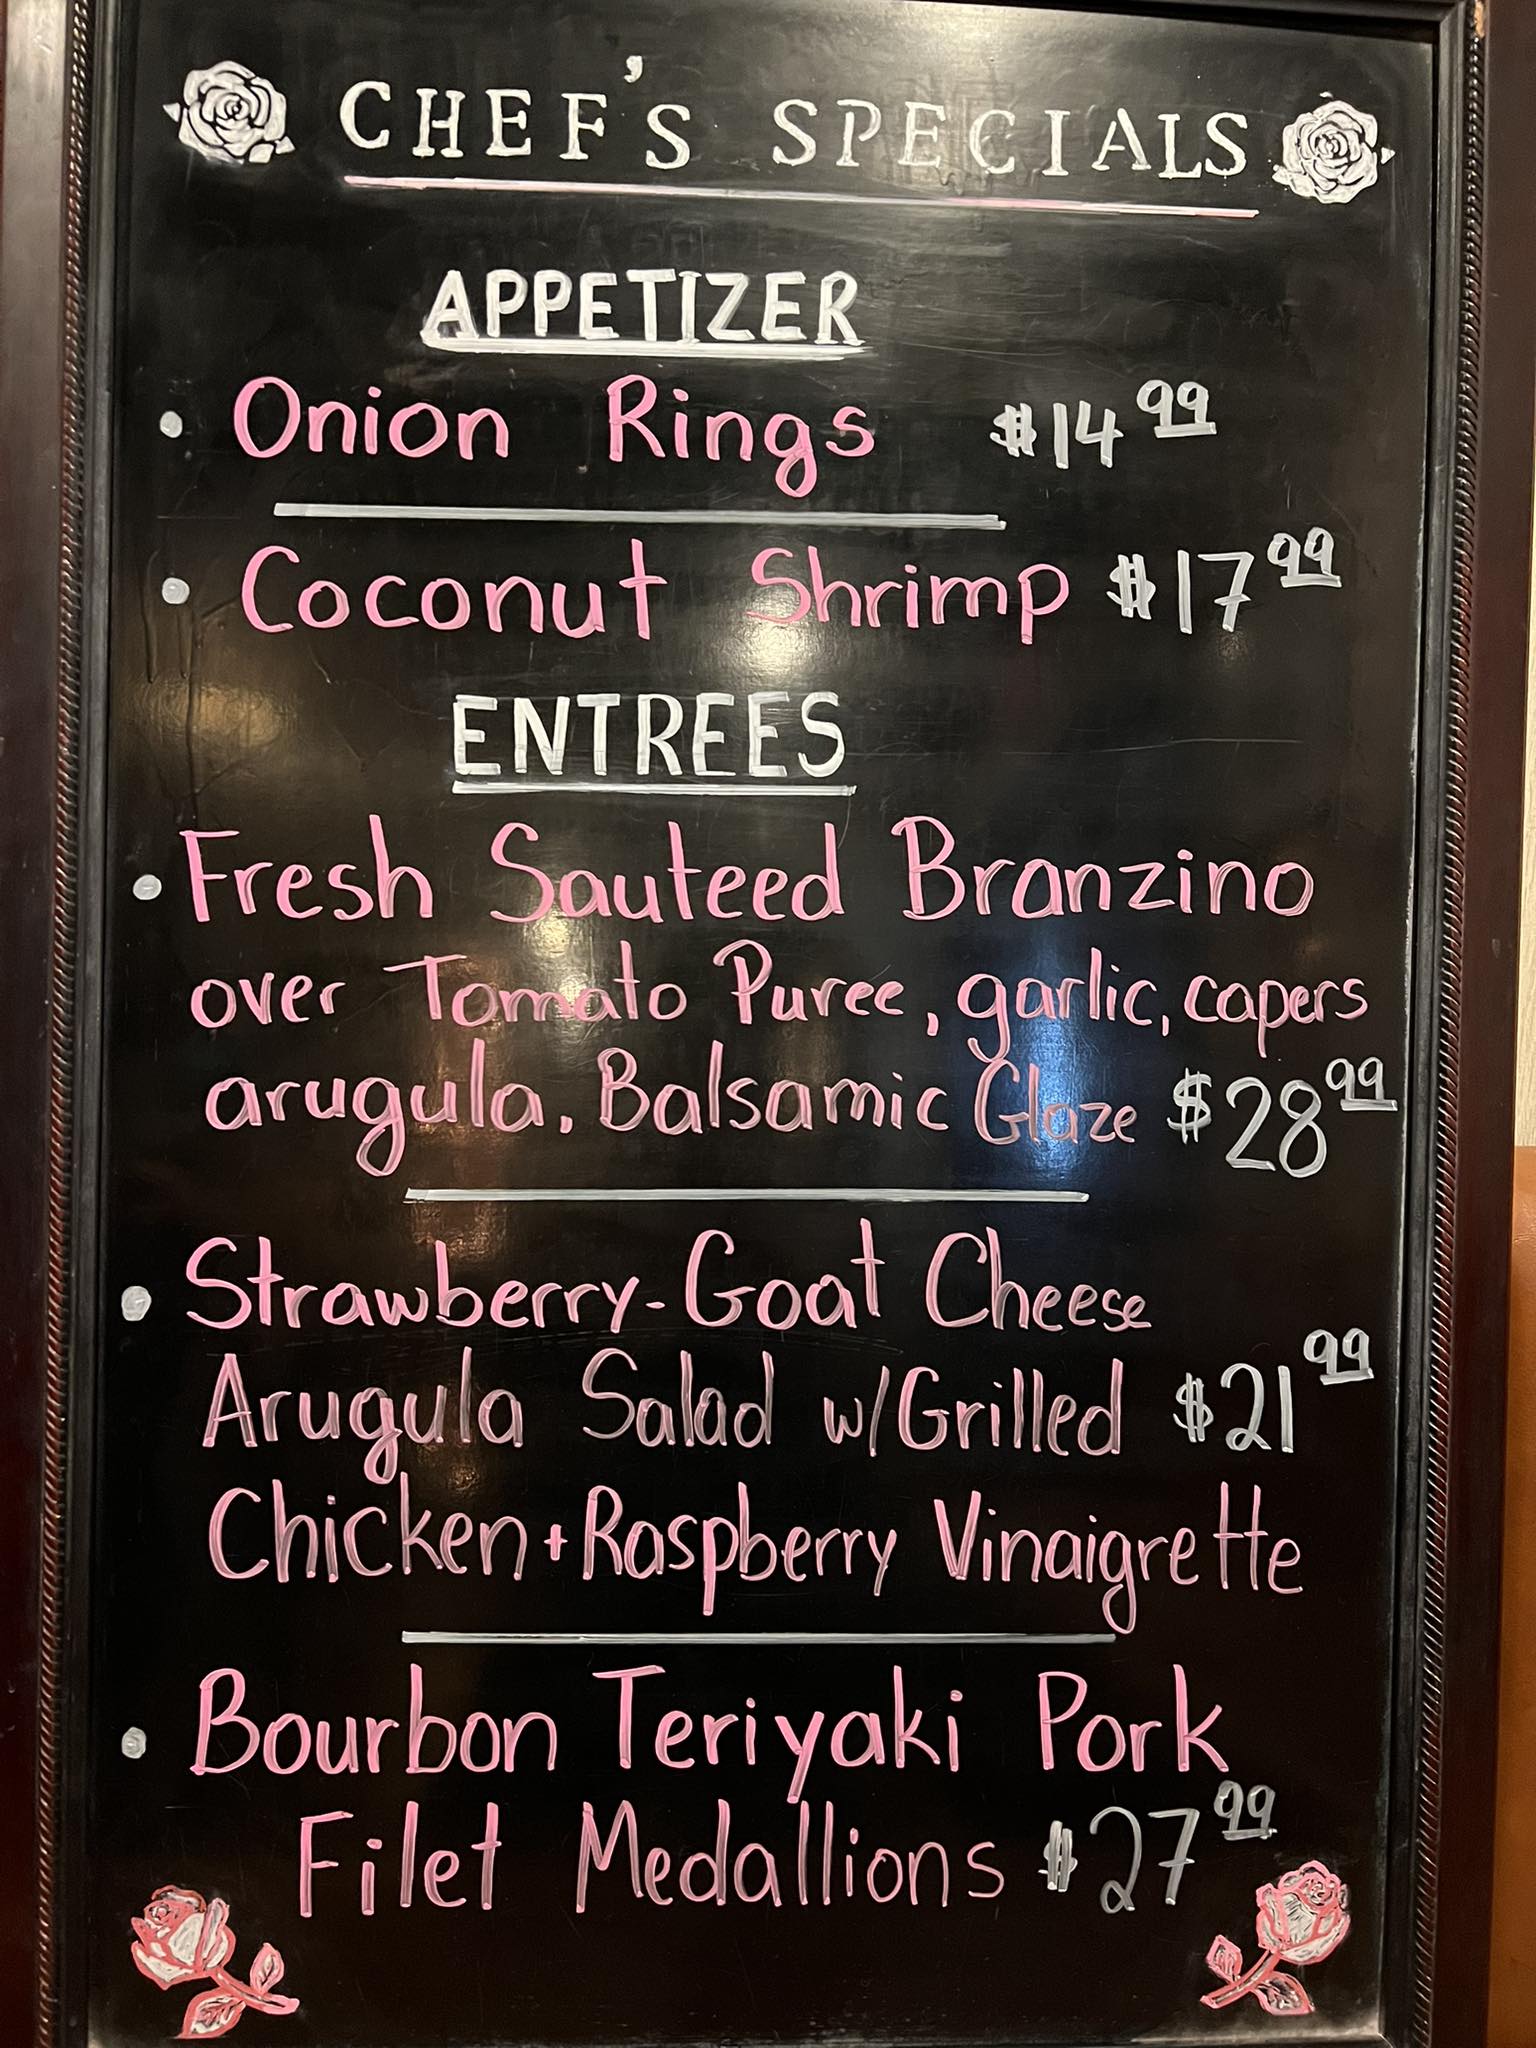 CHEF'S SPECIALS
APPETIZER
• Onion Rings $14 99
• Coconut Shrimp $17 99
ENTREES
• Fresh Sauteed Branzino
over Tomato Puree, garlic, capers
arugula, Balsamic Glaze $28 99
• Strawberry-Goat Cheese
Arugula Salad w/Grilled $21 99
Chicken + Raspberry Vinaigrette
• Bourbon Teriyaki Pork
Filet Medallions $27 99